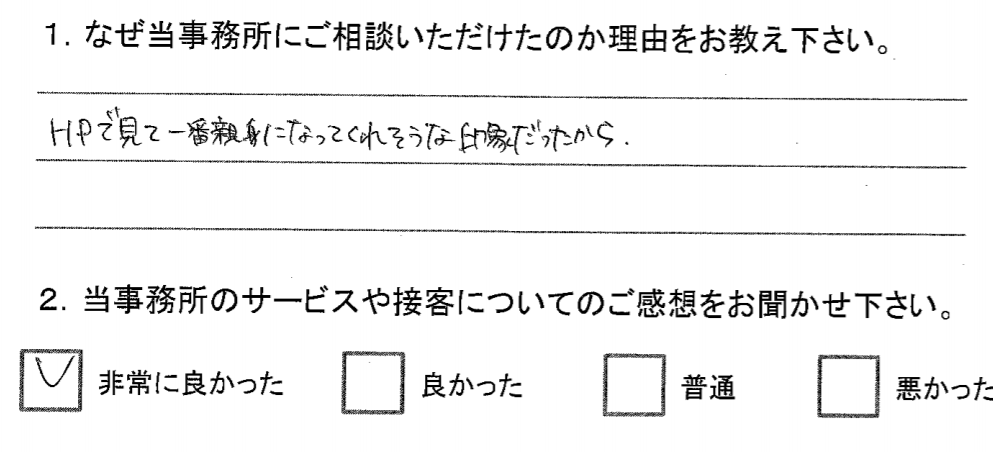 1. なぜ当事務所にご相談いただけたのか理由をお教え下さい。
HPで見て一番親身になってくれそうな印象だったから.
2. 当事務所のサービスや接客についてのご感想をお聞かせ下さい。
非常に良かった 良かった 普通 悪かった